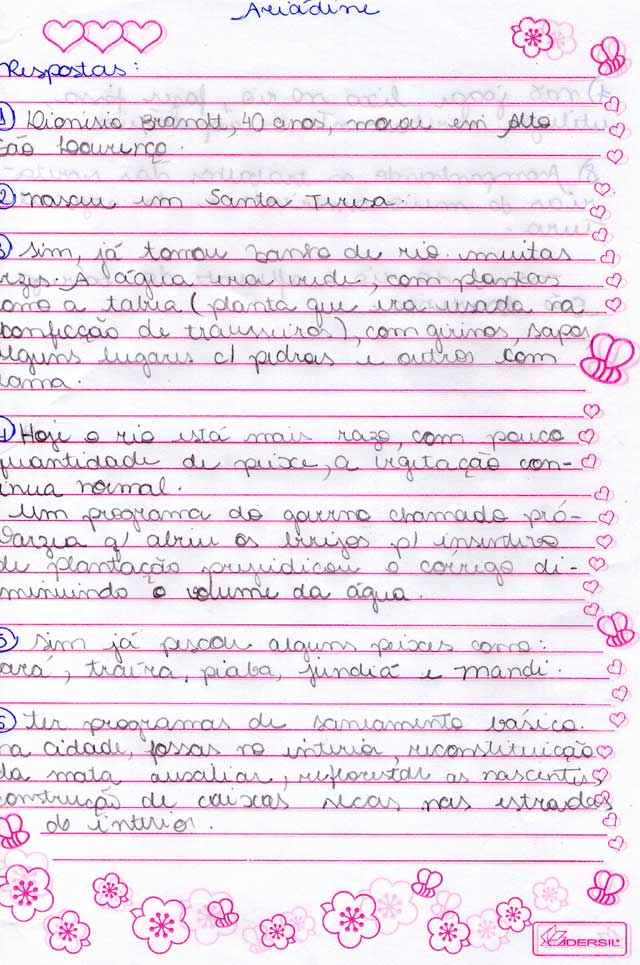 Ariádine
Respostas:
1) Dionisio Brandt, 40 anos, morou em Alto
São Lourenço.
2) nasceu em Santa Teresa.
3 Sim, já tomou banho de rio muitas
vezes. A água era verde, com plantas
como a tabua (planta que era usada na
confecção de travesseiros), com girinos, sapos
alguns lugares c/ pedras e outros com
lama.
4) Hoje o rio está mais razo, com pouca
quantidade de peixe, a vegetação con-
tinua normal.
Um programa do governo chamado pró-
Varzea q/ abriu os brejos p/ insentivo
de plantação prejudicou o córrego di-
minuindo o volume da água.
5) Sim já pescou alguns peixes como:
cará, traíra, piaba, jundiá e mandi.
6 ter programas de saneamento básico
na cidade, fossas no interior, reconstituição
da mata auxaliar, reflorestar as nascentes,
construção de caixas secas nas estradas
do interior.
CADERSIL